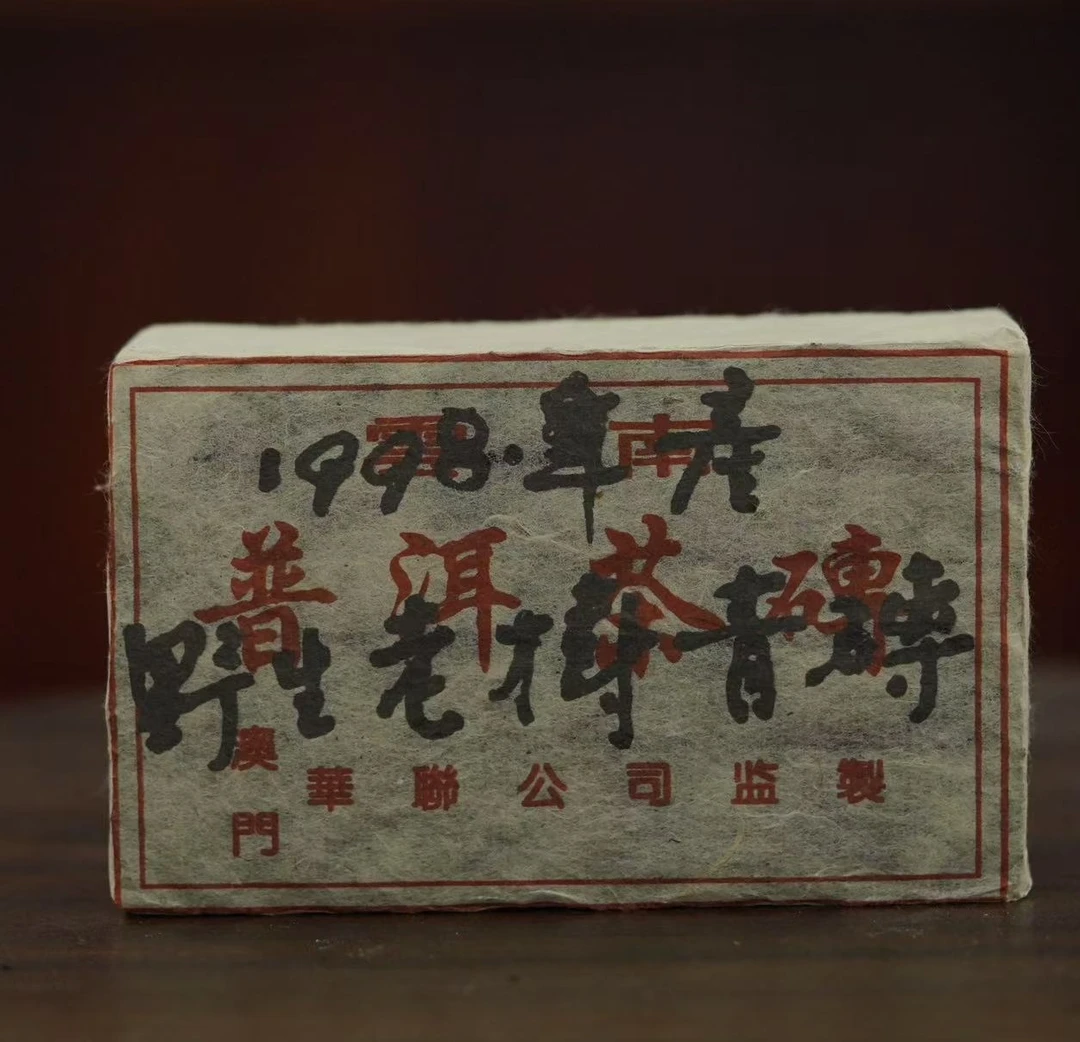 雲南
1998·年產
普洱茶磚
野生老樹青磚
澳門
華聯公司监製